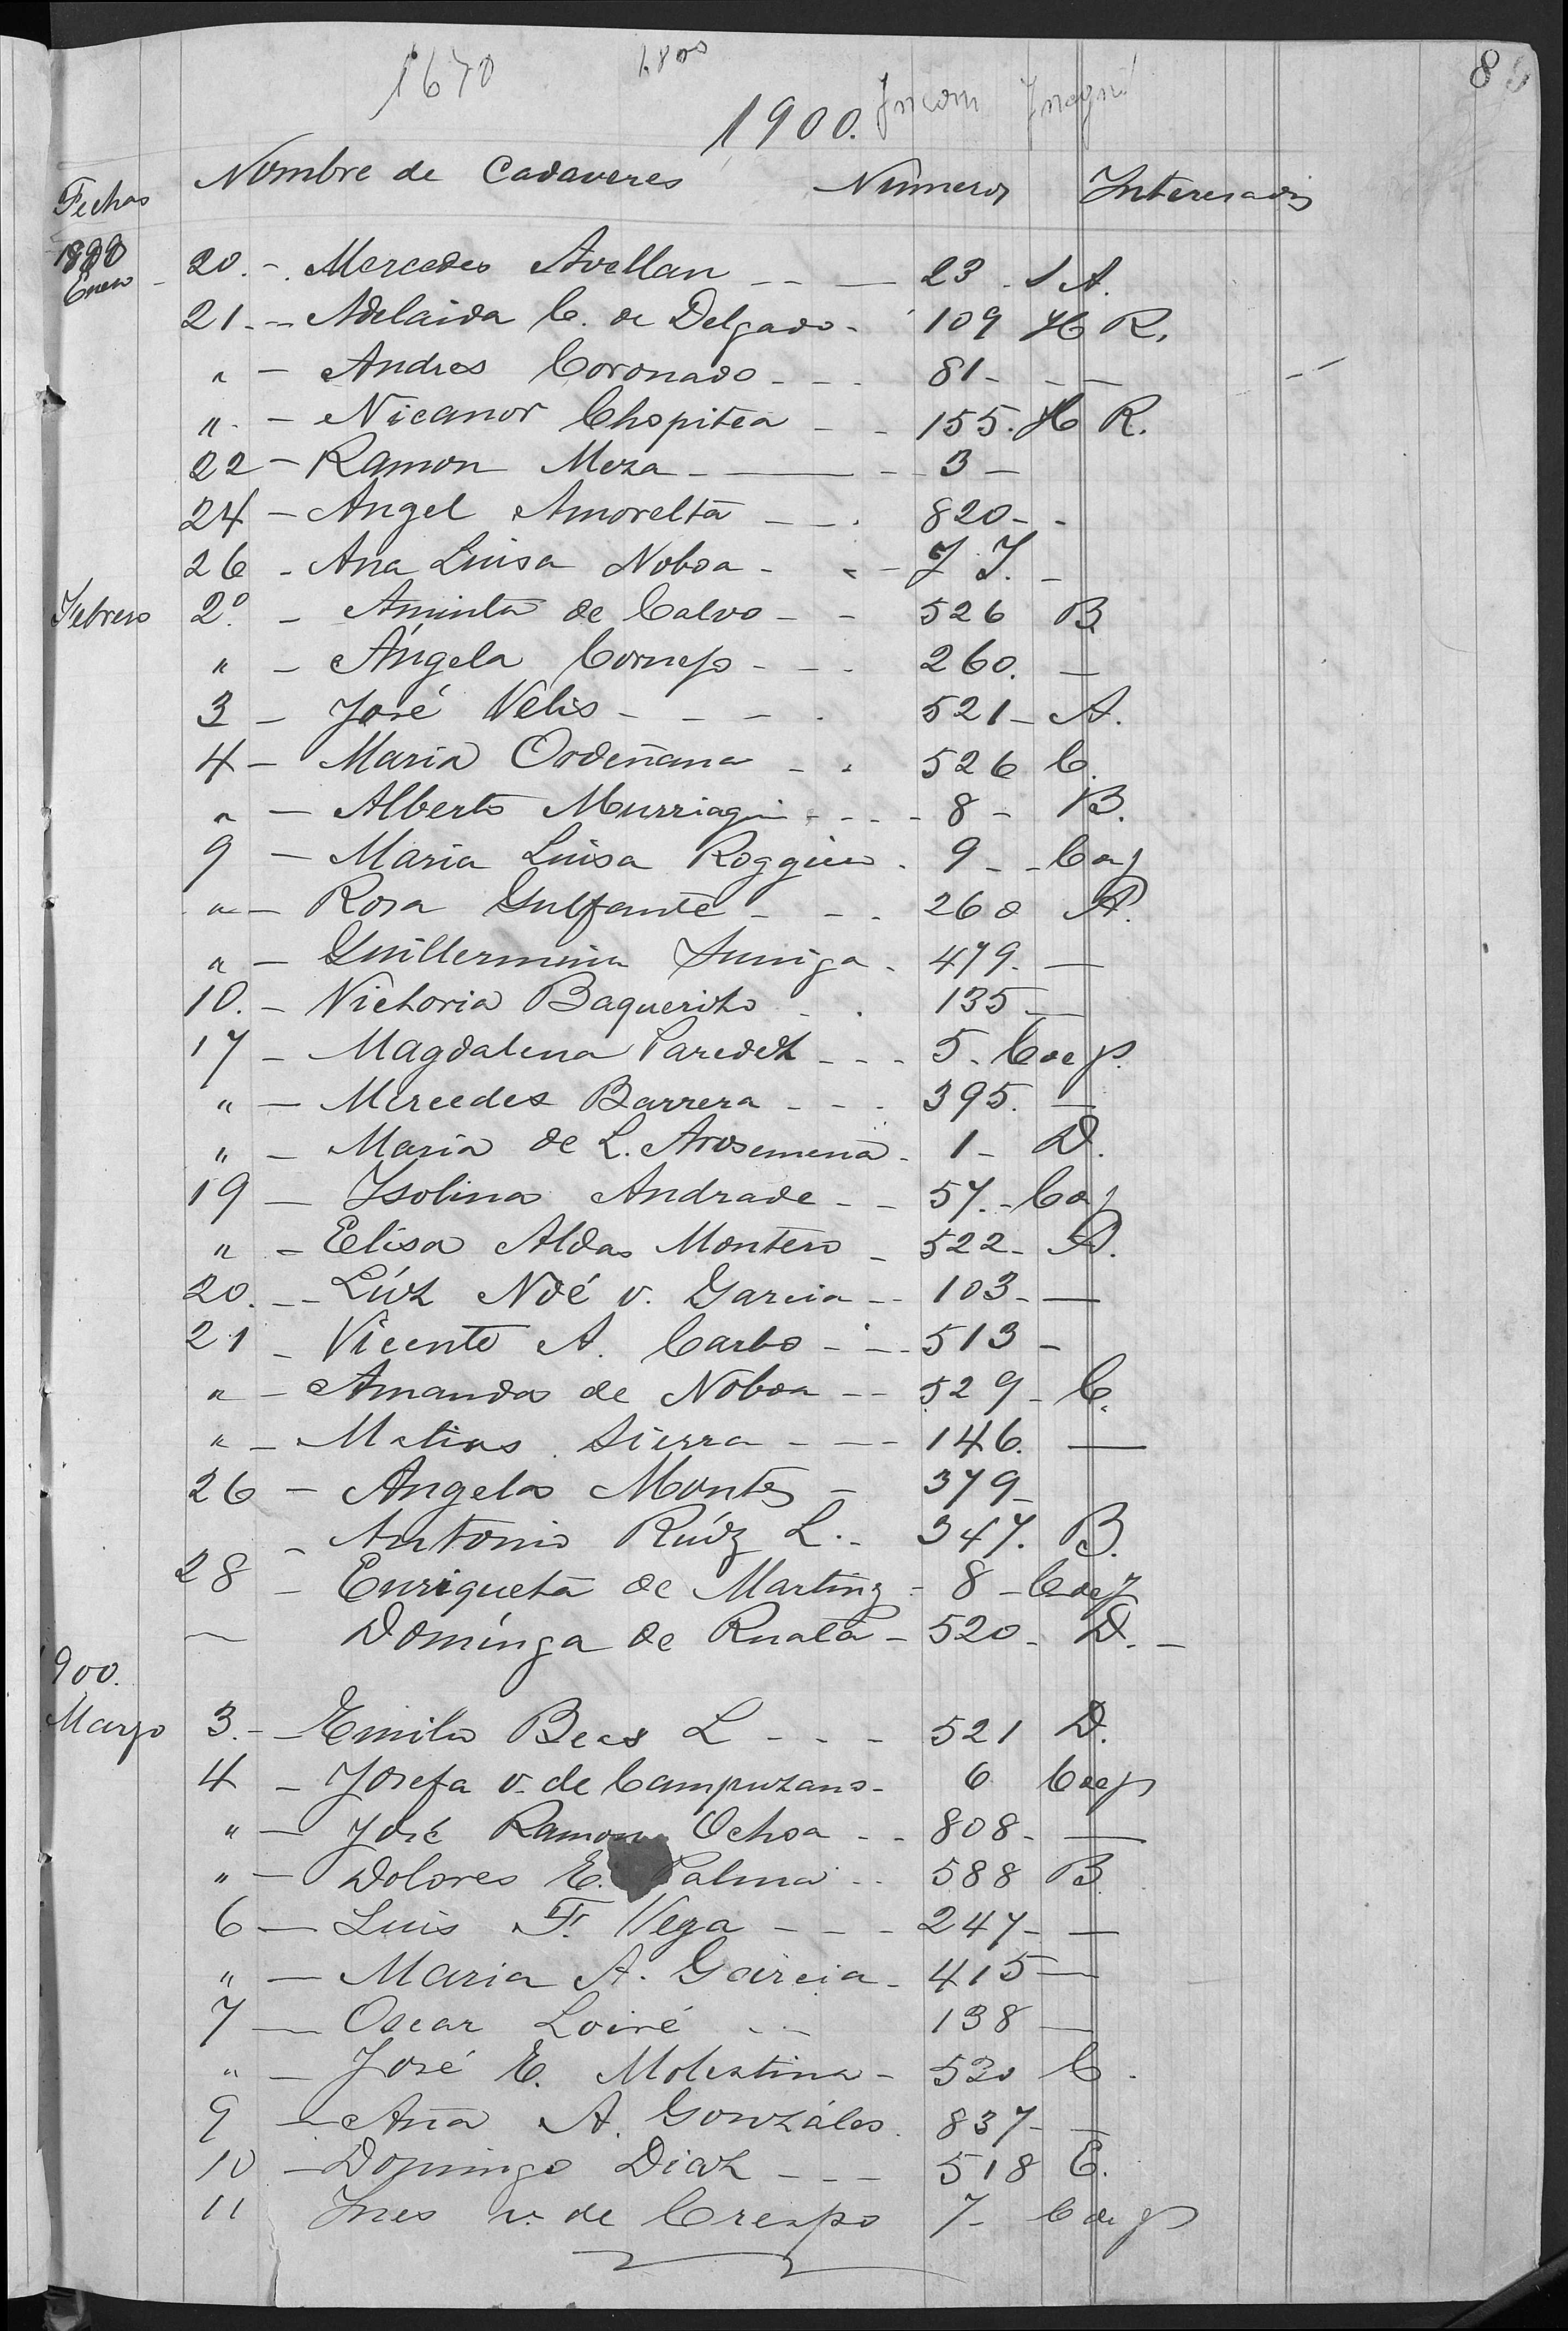 1670
1900.
8
Fechas Nombre de Cadaveres Numeros Interesados
1900
Enero - 20. - Mercedes Avellan - 23 - A.
21. - Adelaida C. de Delgado - 109 H R.
" - Andres Coronado - 81 -
" - Nicanor Chopitea - 155. H R.
22 - Ramon Meza - 3 -
24 - Angel Amorelta - 820 -
26 - Ana Luisa Noboa - J. J. -
Febrero 2º - Aminta de Calvo - 526 B
" - Ángela Cornejo - 260. -
3 - José Velis - 521 - A.
4 - Maria Ordeñana - 526 C.
" - Alberto - 8 - B.
9 - Maria Luisa - 9 - Caj
" - Rosa Gulfante - 260 A.
" - Guillermina Suniga - 479. -
10. - Victoria Baquerizo - 135 -
17 - Magdalena Paredez - 5. Coop.
" - Mercedes Barrera - 395. -
" - Maria de L. Arosemena - 1 - D.
19 - Ysolina Andrade - 57. - Caj
" - Elisa Aldas Montero - 522 - A.
20. - Lúz Noé v. Garcia - 103 -
21 - Vicente A. Carbo - 513 -
" - Amanda de Noboa - 529 - C.
" - Matias Sierra - 146. -
26 - Angela Montes - 379 -
- Antonio Ruíz L. - 347. B.
28 - Enriqueta de Martinz - 8 -
Domínga de Rnata - 520 - D. -
1900.
Marzo 3. - Emilio L - 521 D.
4 - Josefa v. de Campuzano - 6
" - José Ramon Ochoa - 808 -
" - Dolores E. Palma - 588 B
6 - Luis F. Vega - 247 -
" - Maria A. Garcia - 415 -
7 - Oscar Loiré - 138 -
" - José E. Molestina - 520 C.
9 - Ana A. Gonzáles. 837 -
10 - Domingo Diaz - 518 E.
11 Ines v. de Crespo 7 -